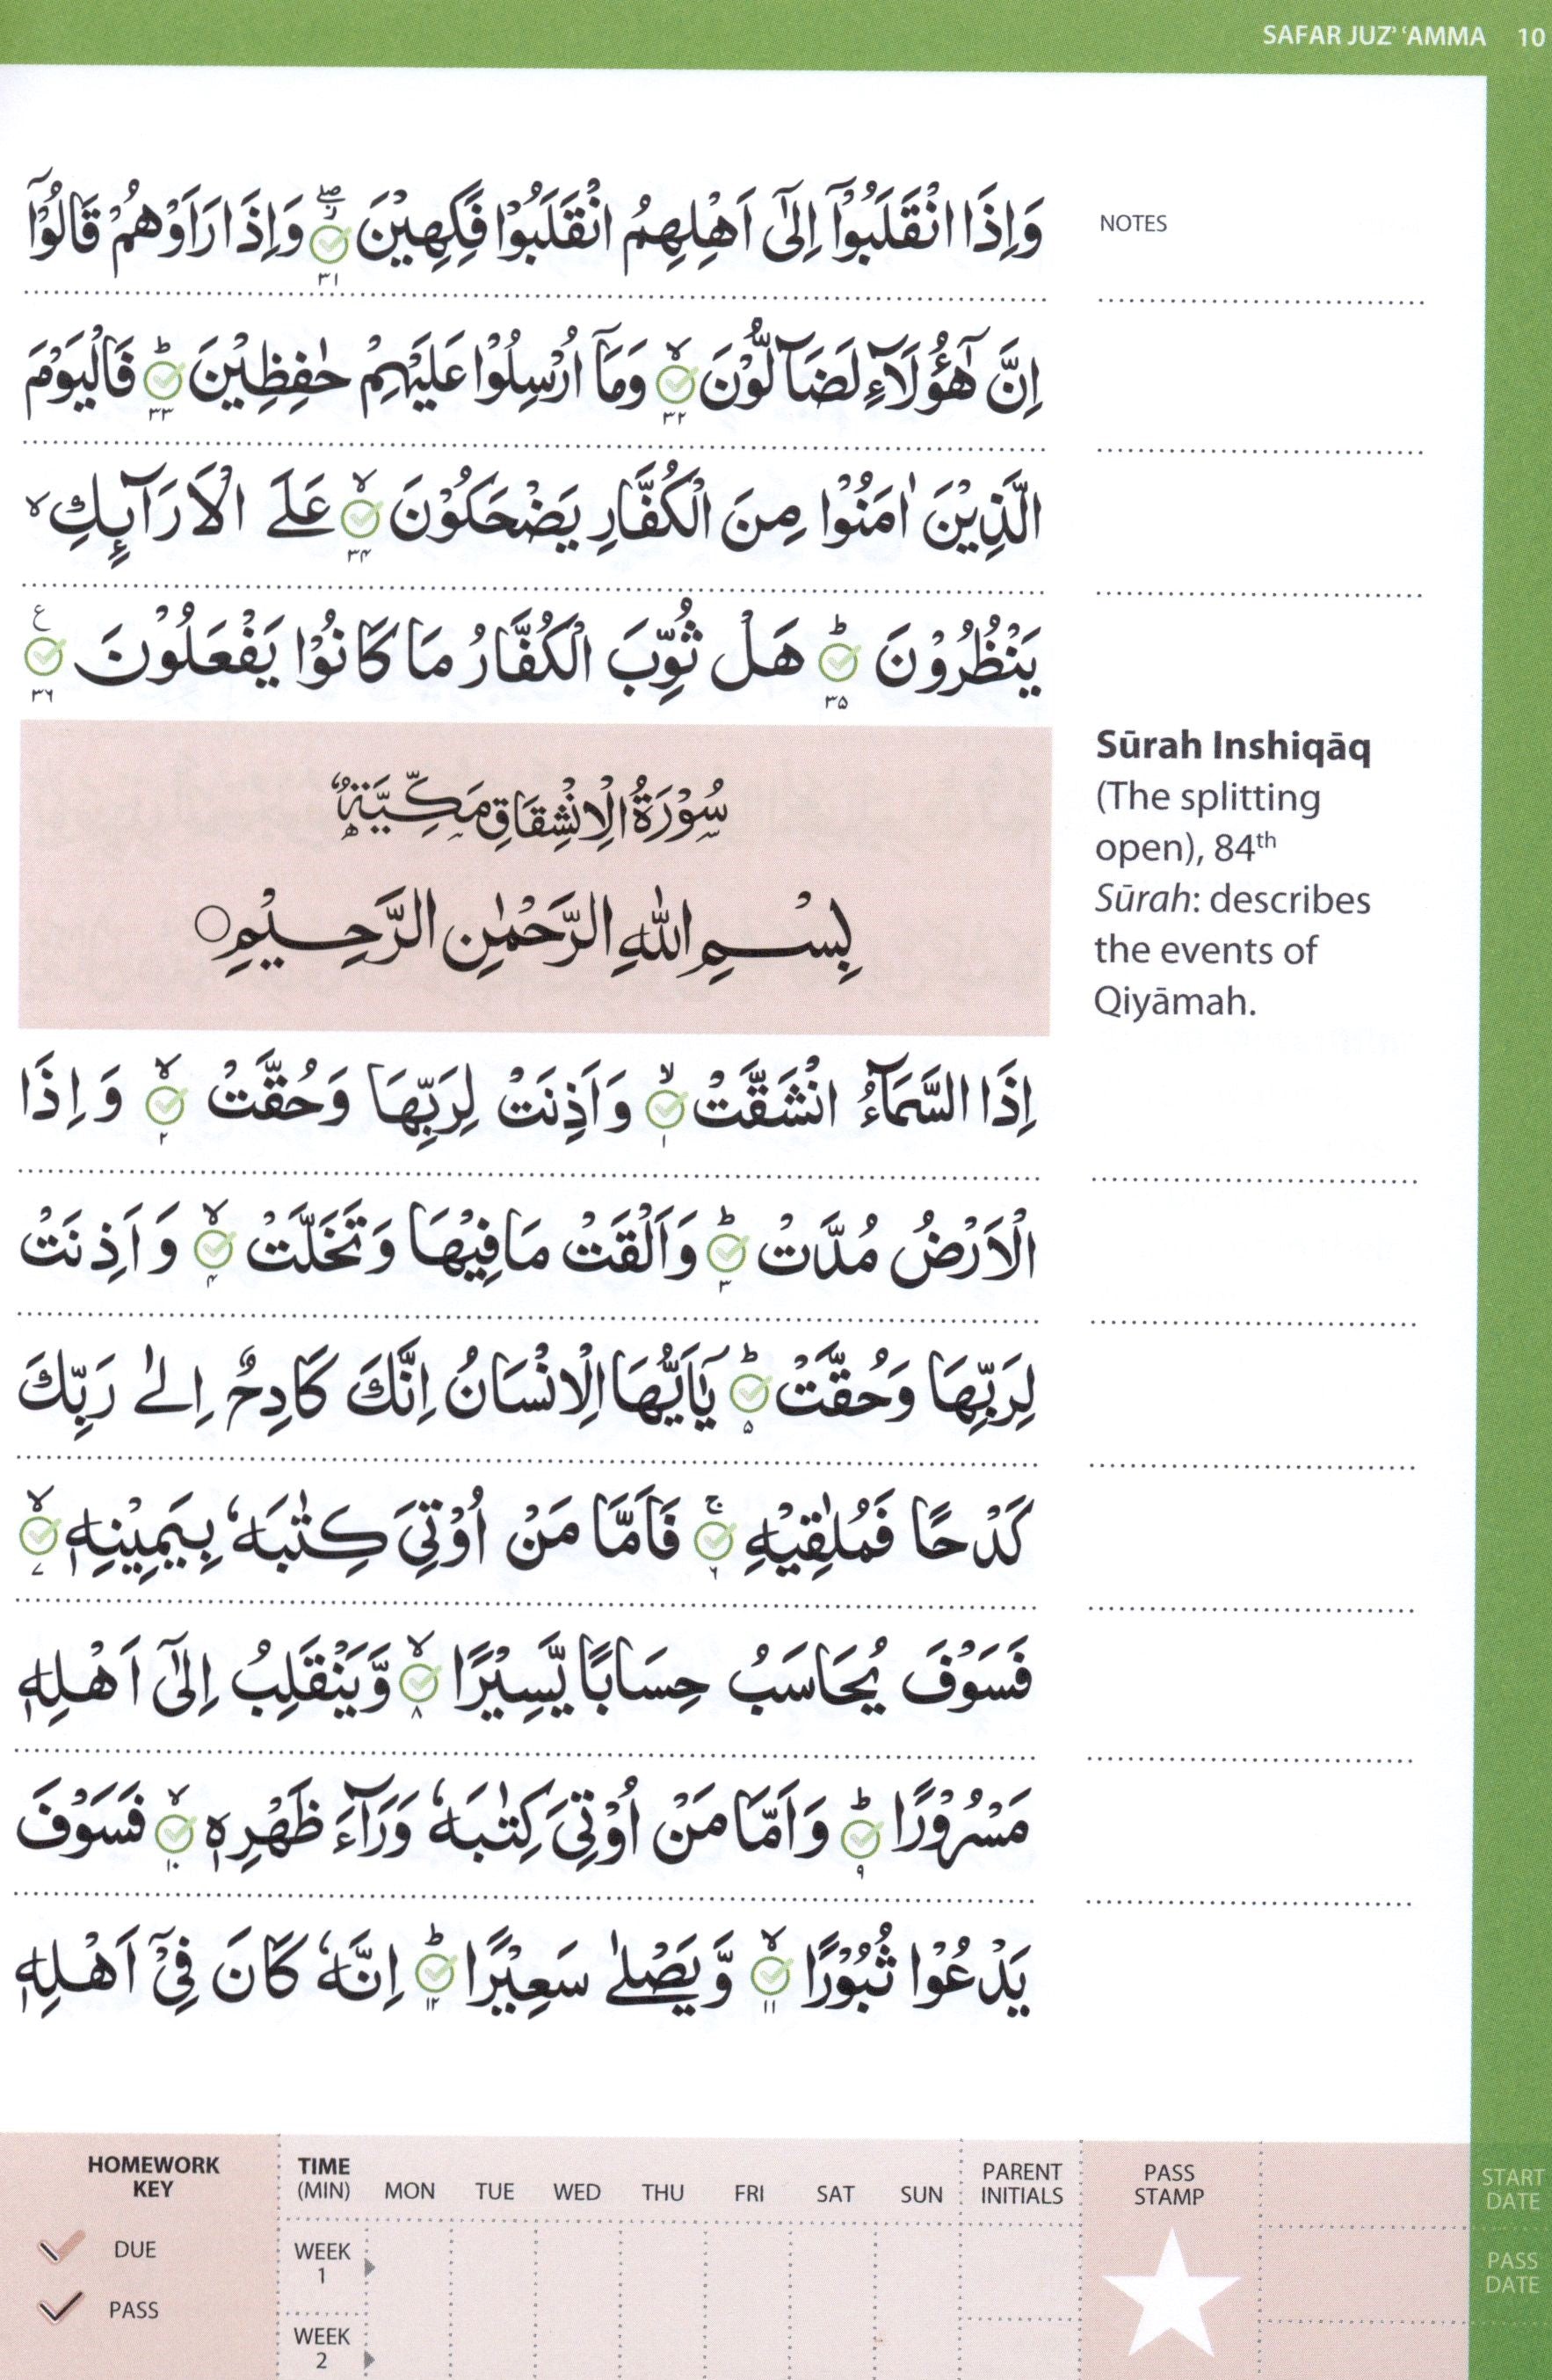 SAFAR JUZ’ ‘AMMA 10
وَاِذَا انْقَلَبُوْۤا اِلٰۤى اَهْلِهِمُ انْقَلَبُوْا فَكِهِيْنَ ۖ۫ ۳۱ وَاِذَا رَاَوْهُمْ قَالُوْۤا
NOTES
اِنَّ هٰۤؤُلَآءِ لَضَآلُّوْنَ ۙ ۳۲ وَمَاۤ اُرْسِلُوْا عَلَيْهِمْ حٰفِظِيْنَ ؕ ۳۳ فَالْيَوْمَ
الَّذِيْنَ اٰمَنُوْا مِنَ الْكُفَّارِ يَضْحَكُوْنَ ۙ ۳۴ عَلَى الْاَرَآئِكِ ۙ
يَنْظُرُوْنَ ؕ ۳۵ هَلْ ثُوِّبَ الْكُفَّارُ مَا كَانُوْا يَفْعَلُوْنَ ع ۳۶
سُوْرَةُ الْاِنْشِقَاقِ مَكِّيَّةٌ
بِسْمِ اللّٰهِ الرَّحْمٰنِ الرَّحِيْمِ ○
Sūrah Inshiqāq
(The splitting
open), 84th
Sūrah: describes
the events of
Qiyāmah.
اِذَا السَّمَآءُ انْشَقَّتْ ۙ ۱ وَاَذِنَتْ لِرَبِّهَا وَحُقَّتْ ۙ ۲ وَاِذَا
الْاَرْضُ مُدَّتْ ؕ ۳ وَاَلْقَتْ مَا فِيْهَا وَتَخَلَّتْ ۙ ۴ وَاَذِنَتْ
لِرَبِّهَا وَحُقَّتْ ؕ ۵ يٰۤاَيُّهَا الْاِنْسَانُ اِنَّكَ كَادِحٌ اِلٰى رَبِّكَ
كَدْحًا فَمُلٰقِيْهِ ۚ ۶ فَاَمَّا مَنْ اُوْتِيَ كِتٰبَهٗ بِيَمِيْنِهٖ ۙ ۷
فَسَوْفَ يُحَاسَبُ حِسَابًا يَّسِيْرًا ۙ ۸ وَّيَنْقَلِبُ اِلٰۤى اَهْلِهٖ
مَسْرُوْرًا ؕ ۹ وَاَمَّا مَنْ اُوْتِيَ كِتٰبَهٗ وَرَآءَ ظَهْرِهٖ ۙ ۱۰ فَسَوْفَ
يَدْعُوْا ثُبُوْرًا ۙ ۱۱ وَّيَصْلٰى سَعِيْرًا ؕ ۱۲ اِنَّهٗ كَانَ فِيْۤ اَهْلِهٖ
HOMEWORK
KEY
DUE
PASS
TIME
(MIN) MON TUE WED THU FRI SAT SUN
WEEK
1
WEEK
2
PARENT
INITIALS
PASS
STAMP
START
DATE
PASS
DATE